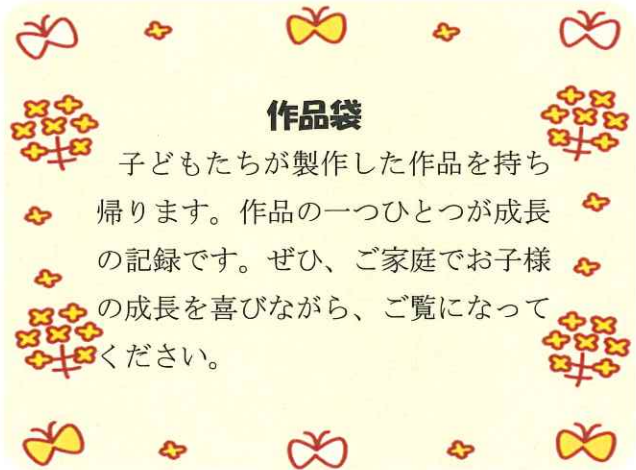 作品袋
子どもたちが製作した作品を持ち
帰ります。作品の一つひとつが成長
の記録です。ぜひ、ご家庭でお子様
の成長を喜びながら、ご覧になって
ください。